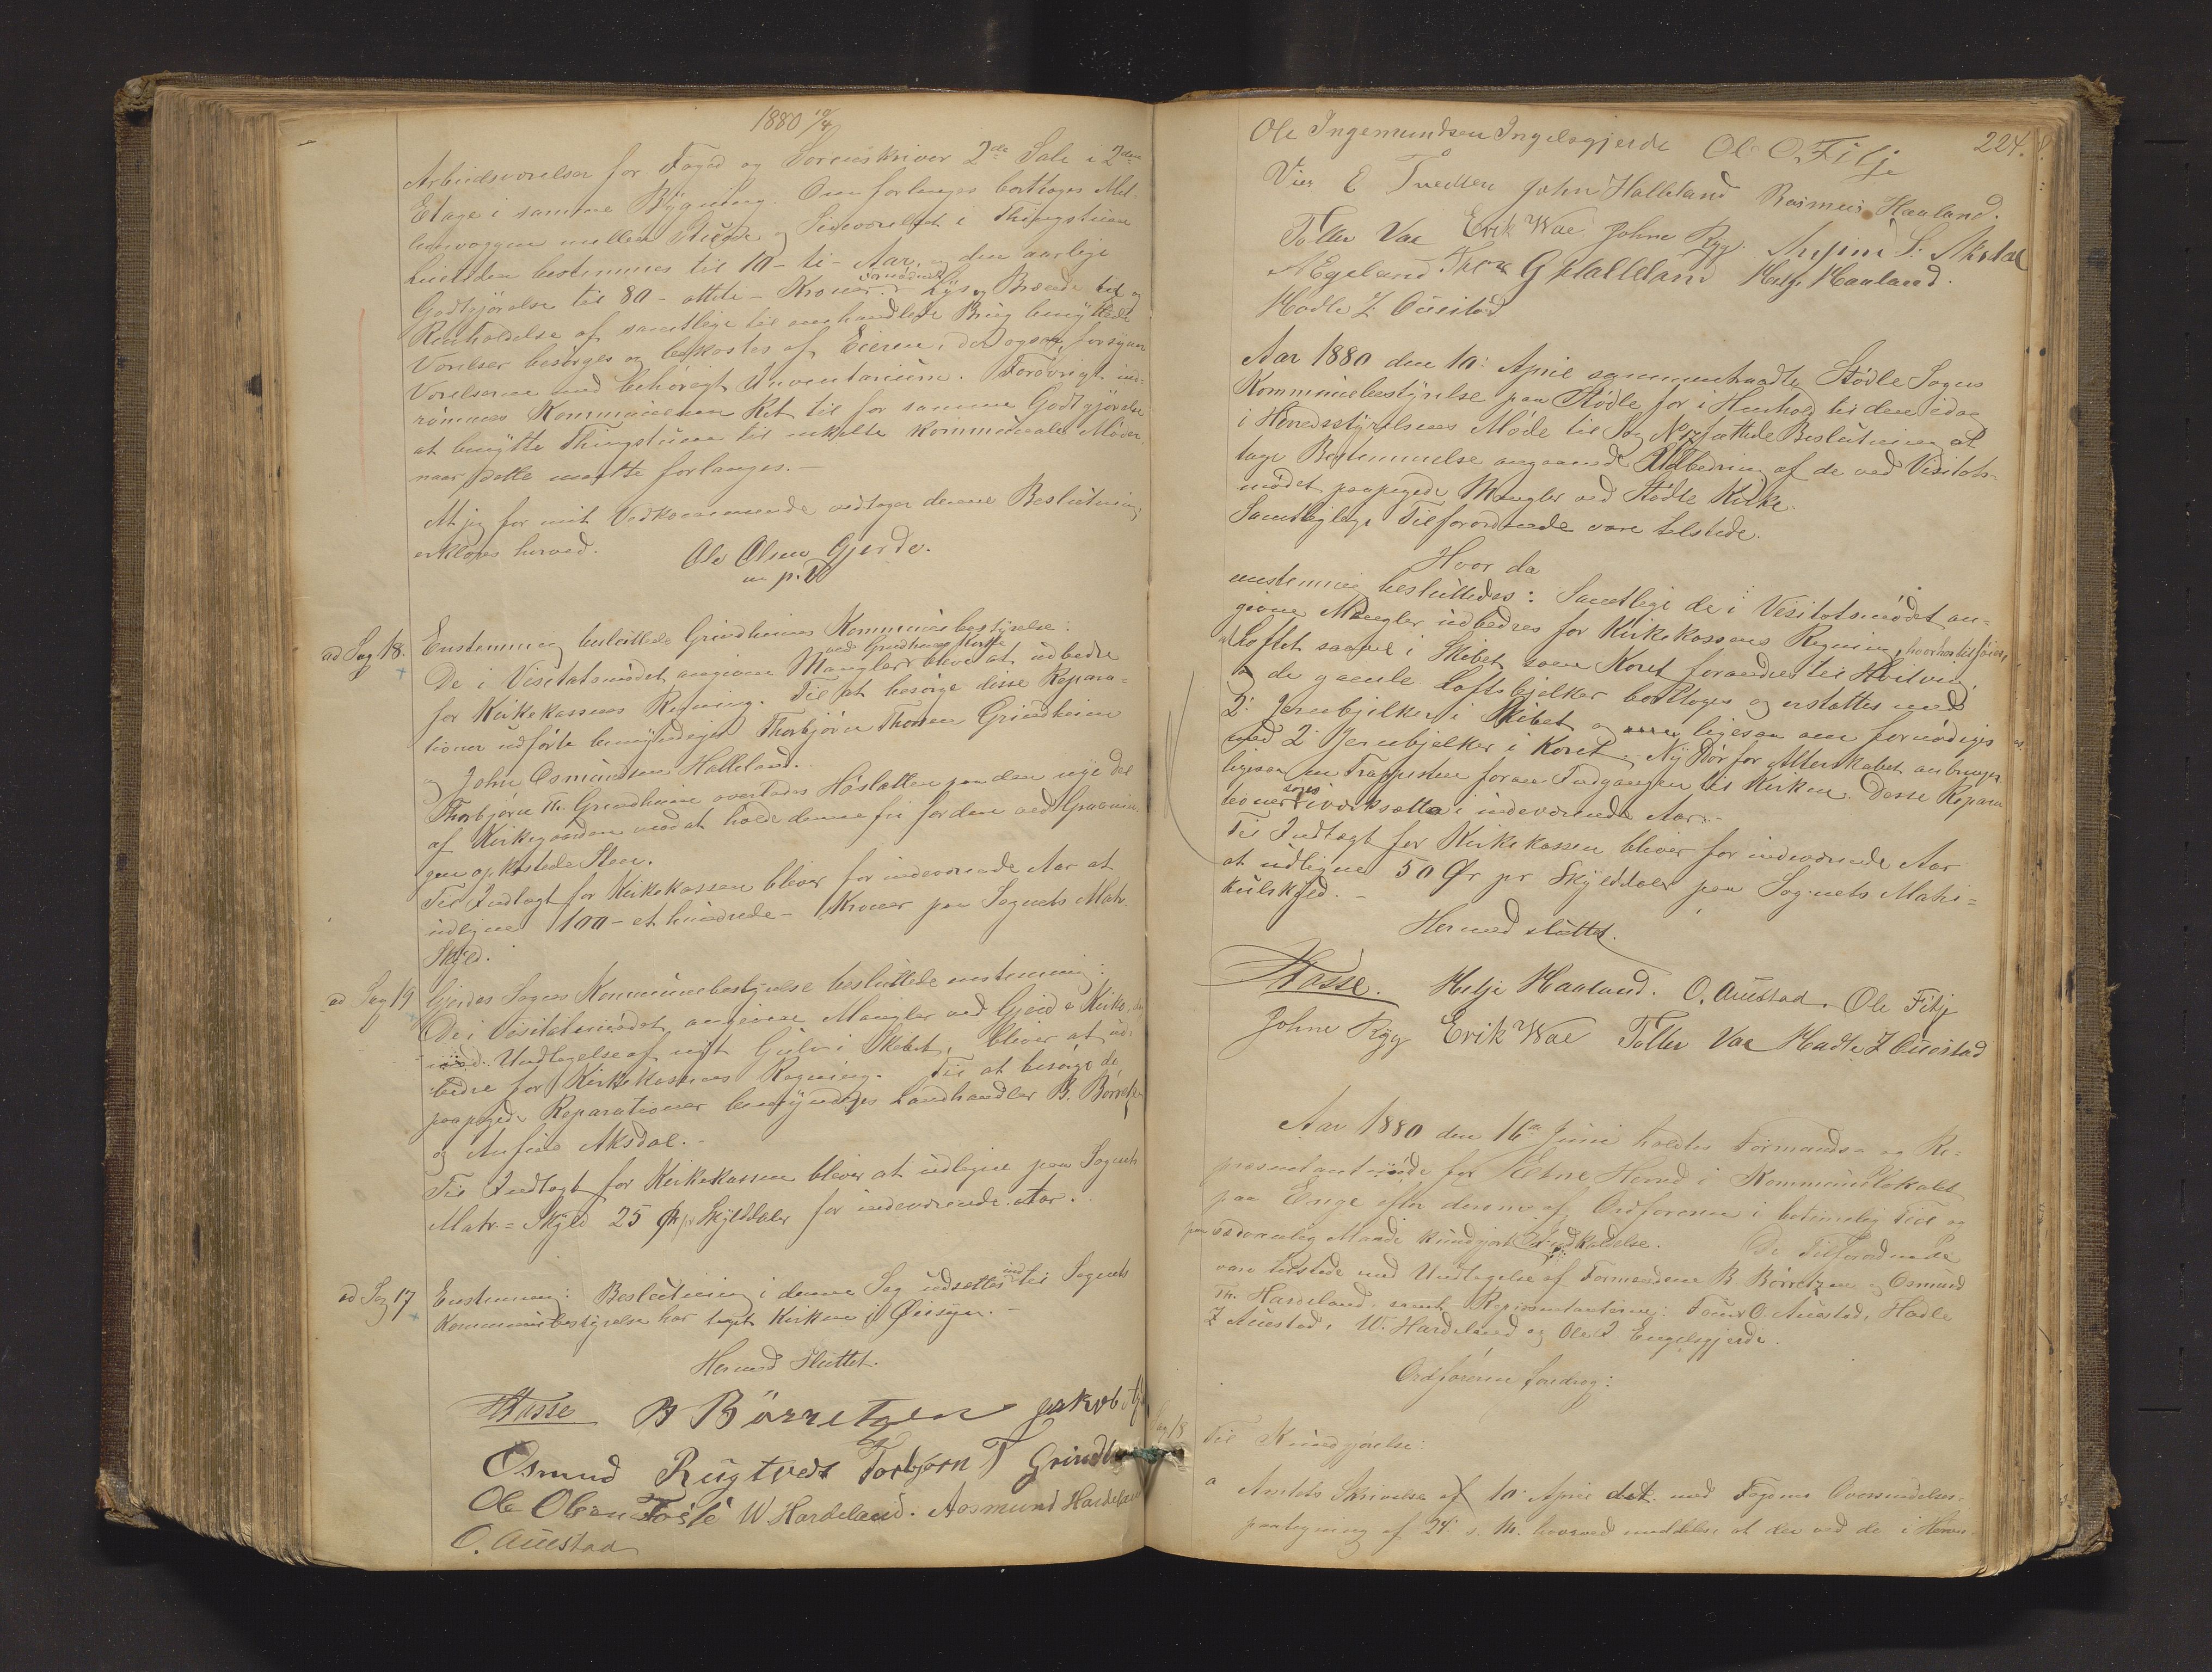 1880 10/4
Arbeidsværelser for Foged og Sorenskriver 2de Sale i 2den
Etage i samme Bygning. Om forlanges borttages Mel-
lemvæggen mellem Stuede og Sideværelset i Thingstuen
Leietiden bestemmes til 10 - ti - Aar, og den aarlige
Godtgjørelse til 80 - otteti - Kroner. Fornøden Lys og Brænde til og
Renholdelse af samtlige til omhandlede Brug benyttede
Værelser besørges og bekostes af Eieren, der ogsaa forsyner
Værelserne med behørigt Inventarium. Forøvrigt ind-
rømmes Kommunen Ret til for samme Godtgjørelse
at benytte Thingstuen til enkelte kommunale Møder
naar dette maatte forlanges. -
At jeg for mit Vedkommende vedtager denne Beslutning,
erklæres herved.
Ole Olsen Gjerde.
m p. P
ad Sag 18. Enstemmig besluttede Grindheims Kommunebestyrelse:
De i Visitatsmødet angivne Mangler ved Grindheims Kirke blive at udbedre
for Kirkekassens Regning. Til at besørge disse Repara-
tioner udførte bemyndiges Thorbjørn Thorsen Grindheim
og John Osmundsen Halleland.
Thorbjørn Th. Grindheim overlades Høslætten paa den nye Del
af Kirkegaarden mod at holde denne fri for den ved Gravnin-
gen opkastede Steen.
Til Indtægt for Kirkekassen bliver for indeværende Aar at
udligne 100 - et hundrede - Kroner paa Sognets Matr.
Skyld.
ad Sag 19 Gjerdes Sogns Kommunebestyrelse besluttede enstemmig:
De i Visitatsmødet angivne Mangler ved Gjerde Kirke,
med Undtagelse af nyt Gulv i Skibet, bliver at ud-
bedre for Kirkekassens Regning. Til at besørge de
paapegede Reparationer bemyndiges Landhandler B. Børretzen
og Anfind Aksdal. -
Til Indtægt for Kirkekassen bliver at udligne paa Sognets
Matr. = Skyld 25 Ør pr Skylddaler for indeværende Aar.
ad Sag 17 Enstemmig: Beslutning i denne Sag udsættes indtil Sognets
Kommunebestyrelse har taget Kirken i Øiesyn. -
Hermed Sluttet.
Stasse B Börretzen Jakob
Osmund Rugtvedt Torbjørn T Grindh
Ole Olsen Tøsse W Hardeland. Aasmund Hardeland
O. Austad
224.
Ole Ingemundsen Ingelsgjerde Ole O. Fitje
Vier E Tvedten John Halleland Rasmus Haaland.
Tollev Vae Erik Wae Johne Rygg. Anfind S. Aksdal
Ægeland Thor G Halleland Helge Haaland.
Hadle Z. Ouestad
Aar 1880 den 10. April sammentraadte Stødle Sogns
Kommunebestyrelse paa Stødle for i Henhold til den idag
i Herredsstyrelsens Møde til Sag No 17 fattede Beslutning at
tage Bestemmelse angaaende Udbedring af de ved Visitats-
mødet paapegede Mangler ved Stødle Kirke.
Samtlige Tilforordnede vare tilstede.
Hvor da
enstemmig besluttedes: Samtlige de i Visitatsmødet an-
givne Mangler udbedres for Kirkekassens Regning, hvorhos tilføies,
at Loftet saavel i Skibet som Koret forandres til Hvælving,
og de gamle Loftsbjelker borttages og erstattes med
2 Jernbjelker i Skibet og ligesaa om fornødiges
med 2 Jernbjelker i Koret. Ny Dør for Alterskabet anbringes
ligesaa en Trappesten foran Indgangen til Kirken. Desse Repara-
tioner søges iværksatte i indeværende Aar. -
Til Indtægt for Kirkekassen bliver for indeværende Aar
at udligne 50 Ør pr Skylddaler paa Sognets Matri=
kulskyld. -
Hermed sluttet.
Stasse. Helje Haaland. O. Austad. Ole Fitje
Johne Rygg Erik Wae Tollev Vae Hadle Z Ouestad
Aar 1880 den 16de Juni holdtes Formands- og Re-
præsentantmøde for Etne Herred i Kommunelokalet
paa Enge efter derom af Ordføreren i betimelig Tid og
paa sædvanlig Maade kundgjort Indkaldelse. De Tilforordnede
vare tilstede med Undtagelse af Formændene B Børretzen og Osmund
Th. Hardeland, samt Repræsentanterne: Tøur O. Austad, Hadle
Z Austad, W. Hardeland og Ole I Engelsgjerde.
Ordføreren foredrog:
Sag 18 Til Kundgjørelse:
a Amtets Skrivelse af 10 April det. med Fogdens Oversendelses-
paategning af 24. s. M. hvorved meddeles at der ved de i Herre-